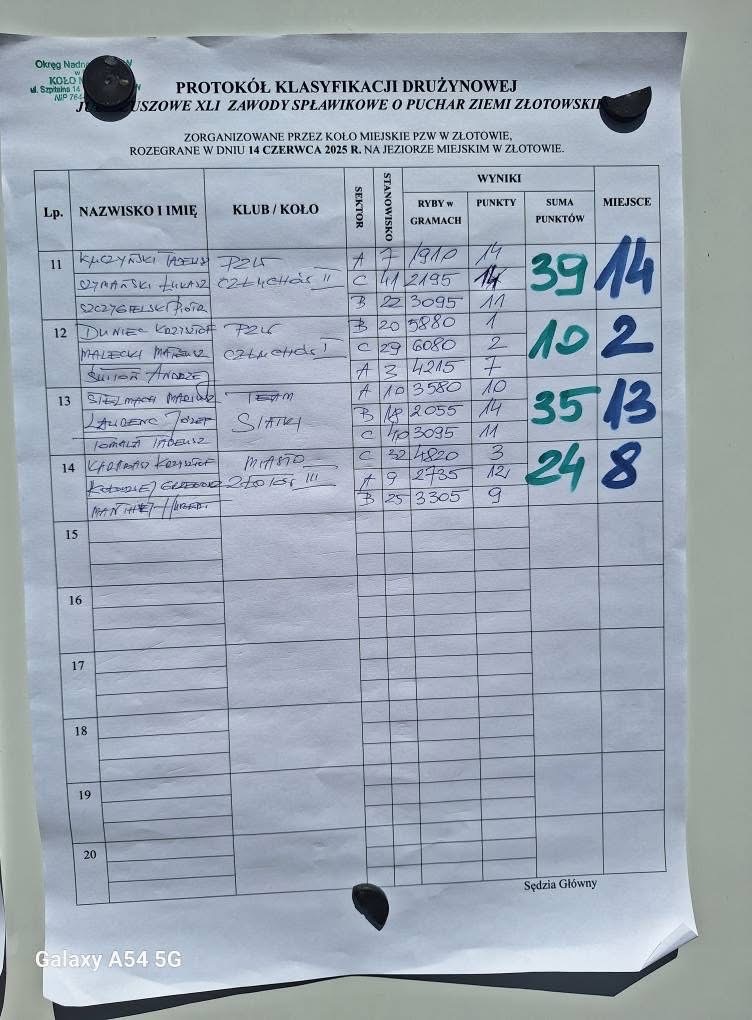 Okręg Nadn
w
KOŁO
ul. Szpitalna 14
NIP 764
PROTOKÓŁ KLASYFIKACJI DRUŻYNOWEJ
USZOWE XLI ZAWODY SPŁAWIKOWE O PUCHAR ZIEMI ZŁOTOWSKIE
ZORGANIZOWANE PRZEZ KOŁO MIEJSKIE PZW W ZŁOTOWIE,
ROZEGRANE W DNIU 14 CZERWCA 2025 R. NA JEZIORZE MIEJSKIM W ZŁOTOWIE.
Lp. NAZWISKO I IMIĘ KLUB / KOŁO SEKTOR STANOWISKO WYNIKI MIEJSCE
RYBY w GRAMACH PUNKTY SUMA PUNKTÓW
11 KUCZYŃSKI TADEUSZ PZW A 7 1910 14 39 14
SZYMAŃSKI ŁUKASZ CZŁUCHÓW II C 41 2195 14
SZCZYGIELSKI PIOTR B 22 3095 11
12 DUNIEC KRZYSZTOF PZW B 20 5880 1 10 2
MALECKI MATEUSZ CZŁUCHÓW I C 29 6080 2
ANDRZEJ A 3 4215 7
13 STELMACH MARIUSZ TEAM A 10 3580 10 35 13
JÓZEF SIATKI B 18 2055 14
TOMALA TADEUSZ C 40 3095 11
14 KRZYSZTOF MIASTO C 32 4820 3 24 8
KOŁODZIEJ GRZEGORZ ZŁOTÓW III A 9 2735 12
B 25 3305 9
15
16
17
18
19
20
Sędzia Główny
Galaxy A54 5G